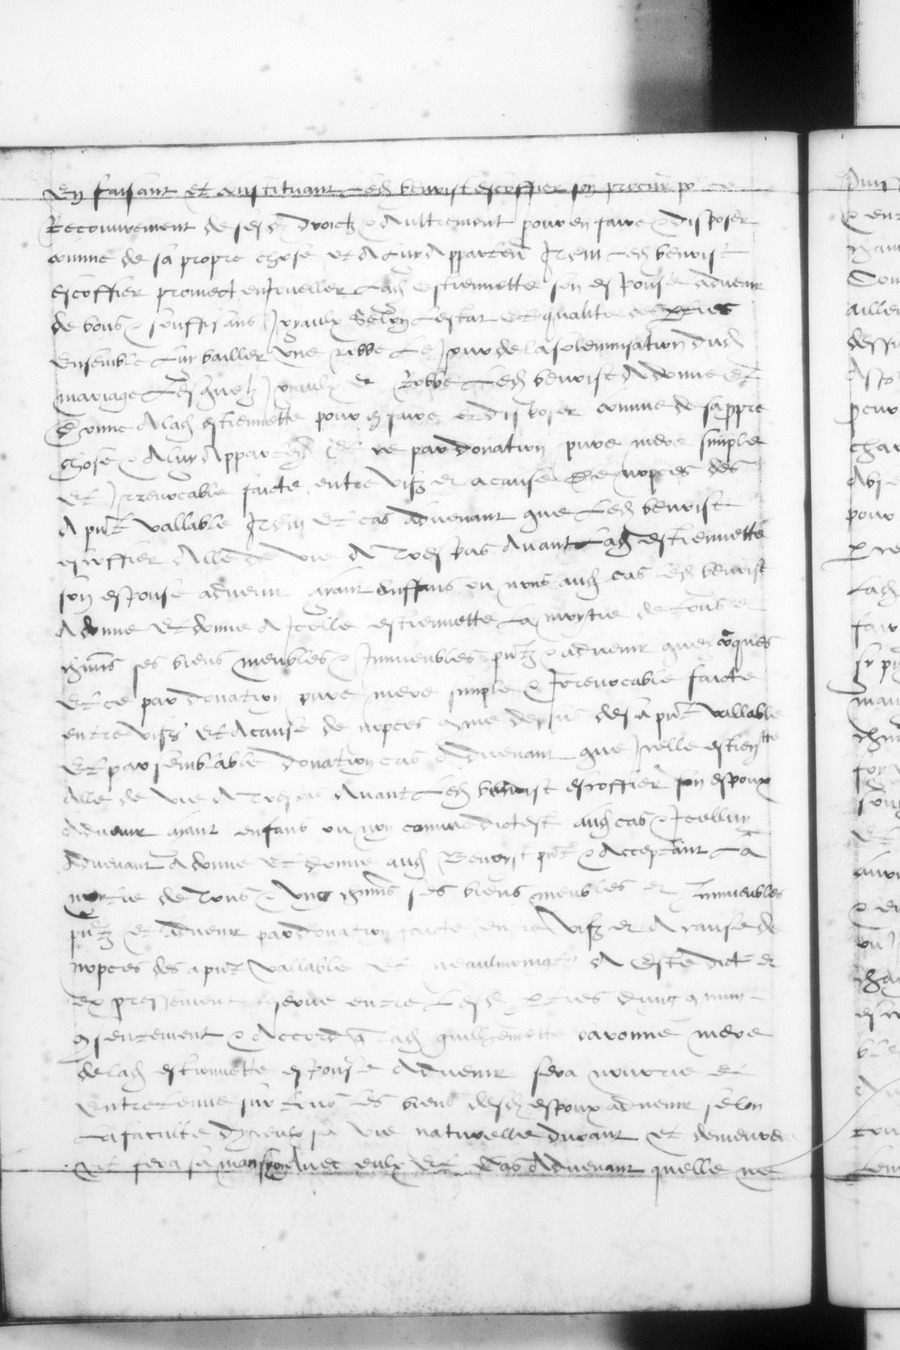 En faisant et constituant led benoist escoffier son procur po ce
Recouvrement de sesd droictz & aultrement pour en faire & disposer
comme de sa propre chose et a luy appartenir Item led benoist
escoffier promect enjoueller lad estiennette son espouse advenir
de bons & souffisans joyaulx selon lestat et qualite des parties
ensemble luy bailler une robbe le jour de la solemnisation dud
mariage Lesquelz joyaulx & Robbe led benoist a donne et
donne a lad estiennette pour en faire et disposer comme de sa ppre
chose & a luy appartenir Et ce par donation pure mere simple
et Irrevocable faicte entre vifz et a cause de nopces des
a pnt vallable Item et cas advenant que led benoist
escoffier alle de vie a trespas avant lad estiennette
son espouse advenir ayant enffans ou nons aud cas led benoist
a donne et donne a Icelle estiennette la moytie de tous et
ses biens meubles & Immeubles pntz & advenir quelcoques
et ce par donation pure mere simple & Irrevocable faicte
entre vifz et a cause de nopces come dessus des a pnt vallable
et par semblable donation cas advenant que Icelle estiennette
alle de vie a trespas avant led benoist escoffier son espoux
advenir ayant enfans ou non comme dict est aud cas & Icelluy
advenant a donne et donne aud Benoyst pnt & acceptant la
moytie de tous & ses biens meubles et Immeubles
pntz et advenir par donation faicte entre vifz et a cause de
nopces des a pnt vallable et a este dict et
expressement entre lesd parties dung comun
consentement & accord q lad guilhemette baronne mere
de lad estiennette espouse advenir sera nourrie et
entretenue sur tous les biens desd espoux advenir selon
la faculte dyceulx sa vie naturelle durant et demeurera
et fera sa mansion avec eulx Et cas advenant quelle ne